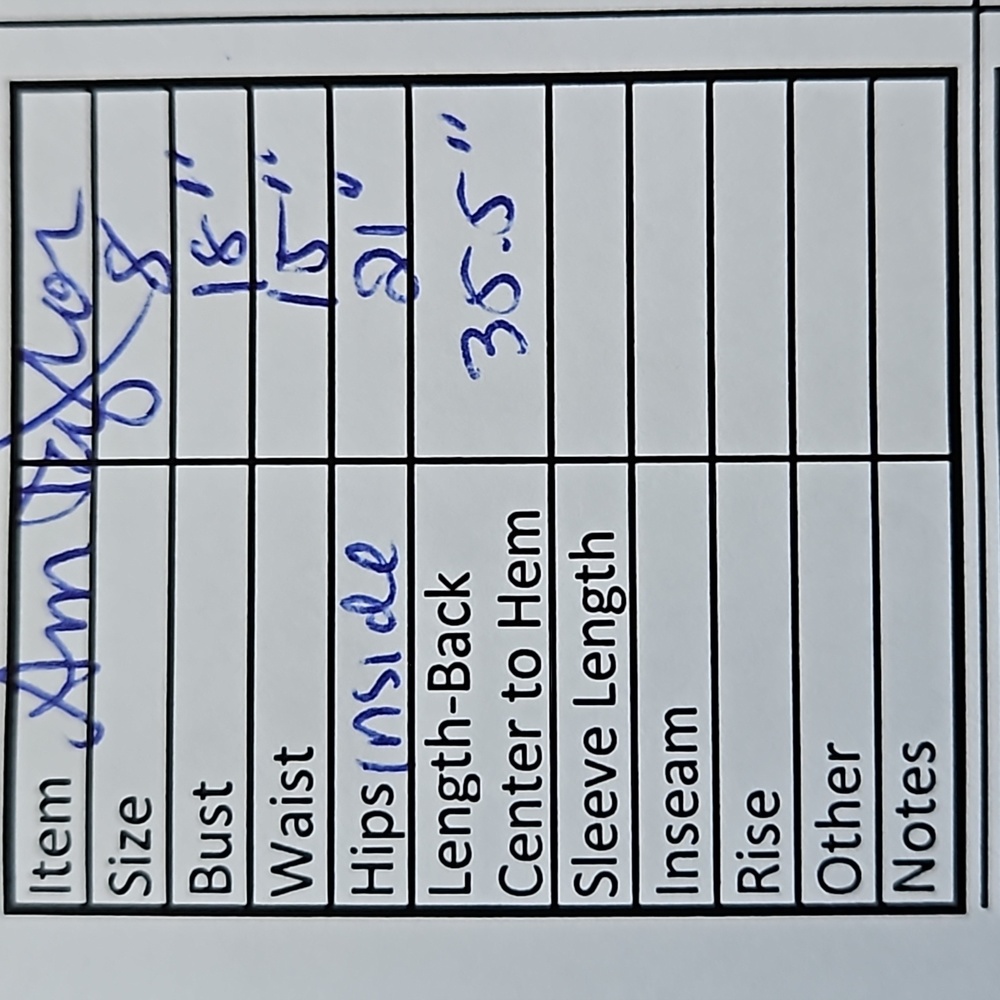 Item Ann Taylor
Size 8
Bust 18"
Waist 15"
Hips Inside 21"
Length-Back
Center to Hem 35.5"
Sleeve Length
Inseam
Rise
Other
Notes